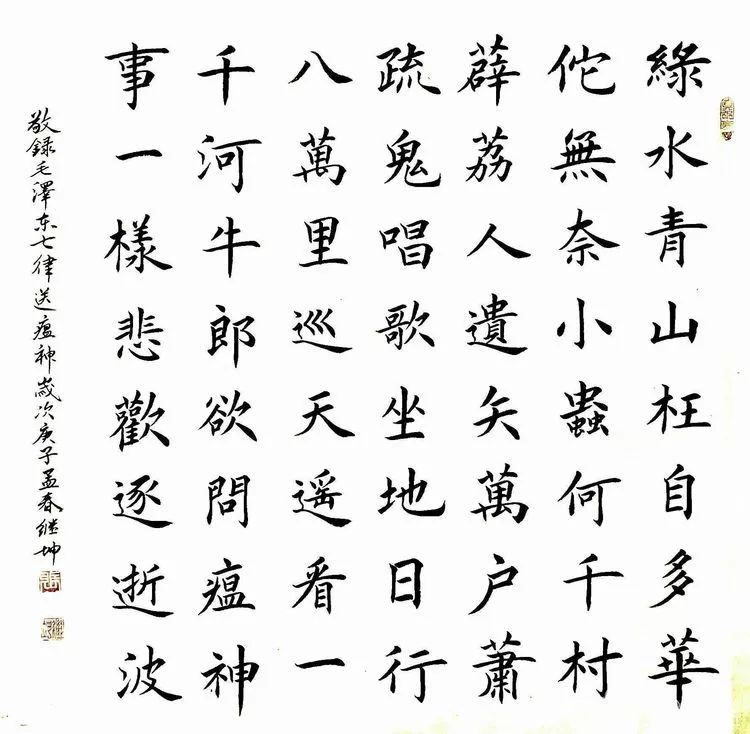 綠水青山枉自多華
佗無奈小蟲何千村
薜荔人遺矢萬户蕭
疏鬼唱歌坐地日行
八萬里巡天遥看一
千河牛郎欲問瘟神
事一樣悲歡逐逝波
敬録毛澤东七律送瘟神歲次庚子孟春继坤